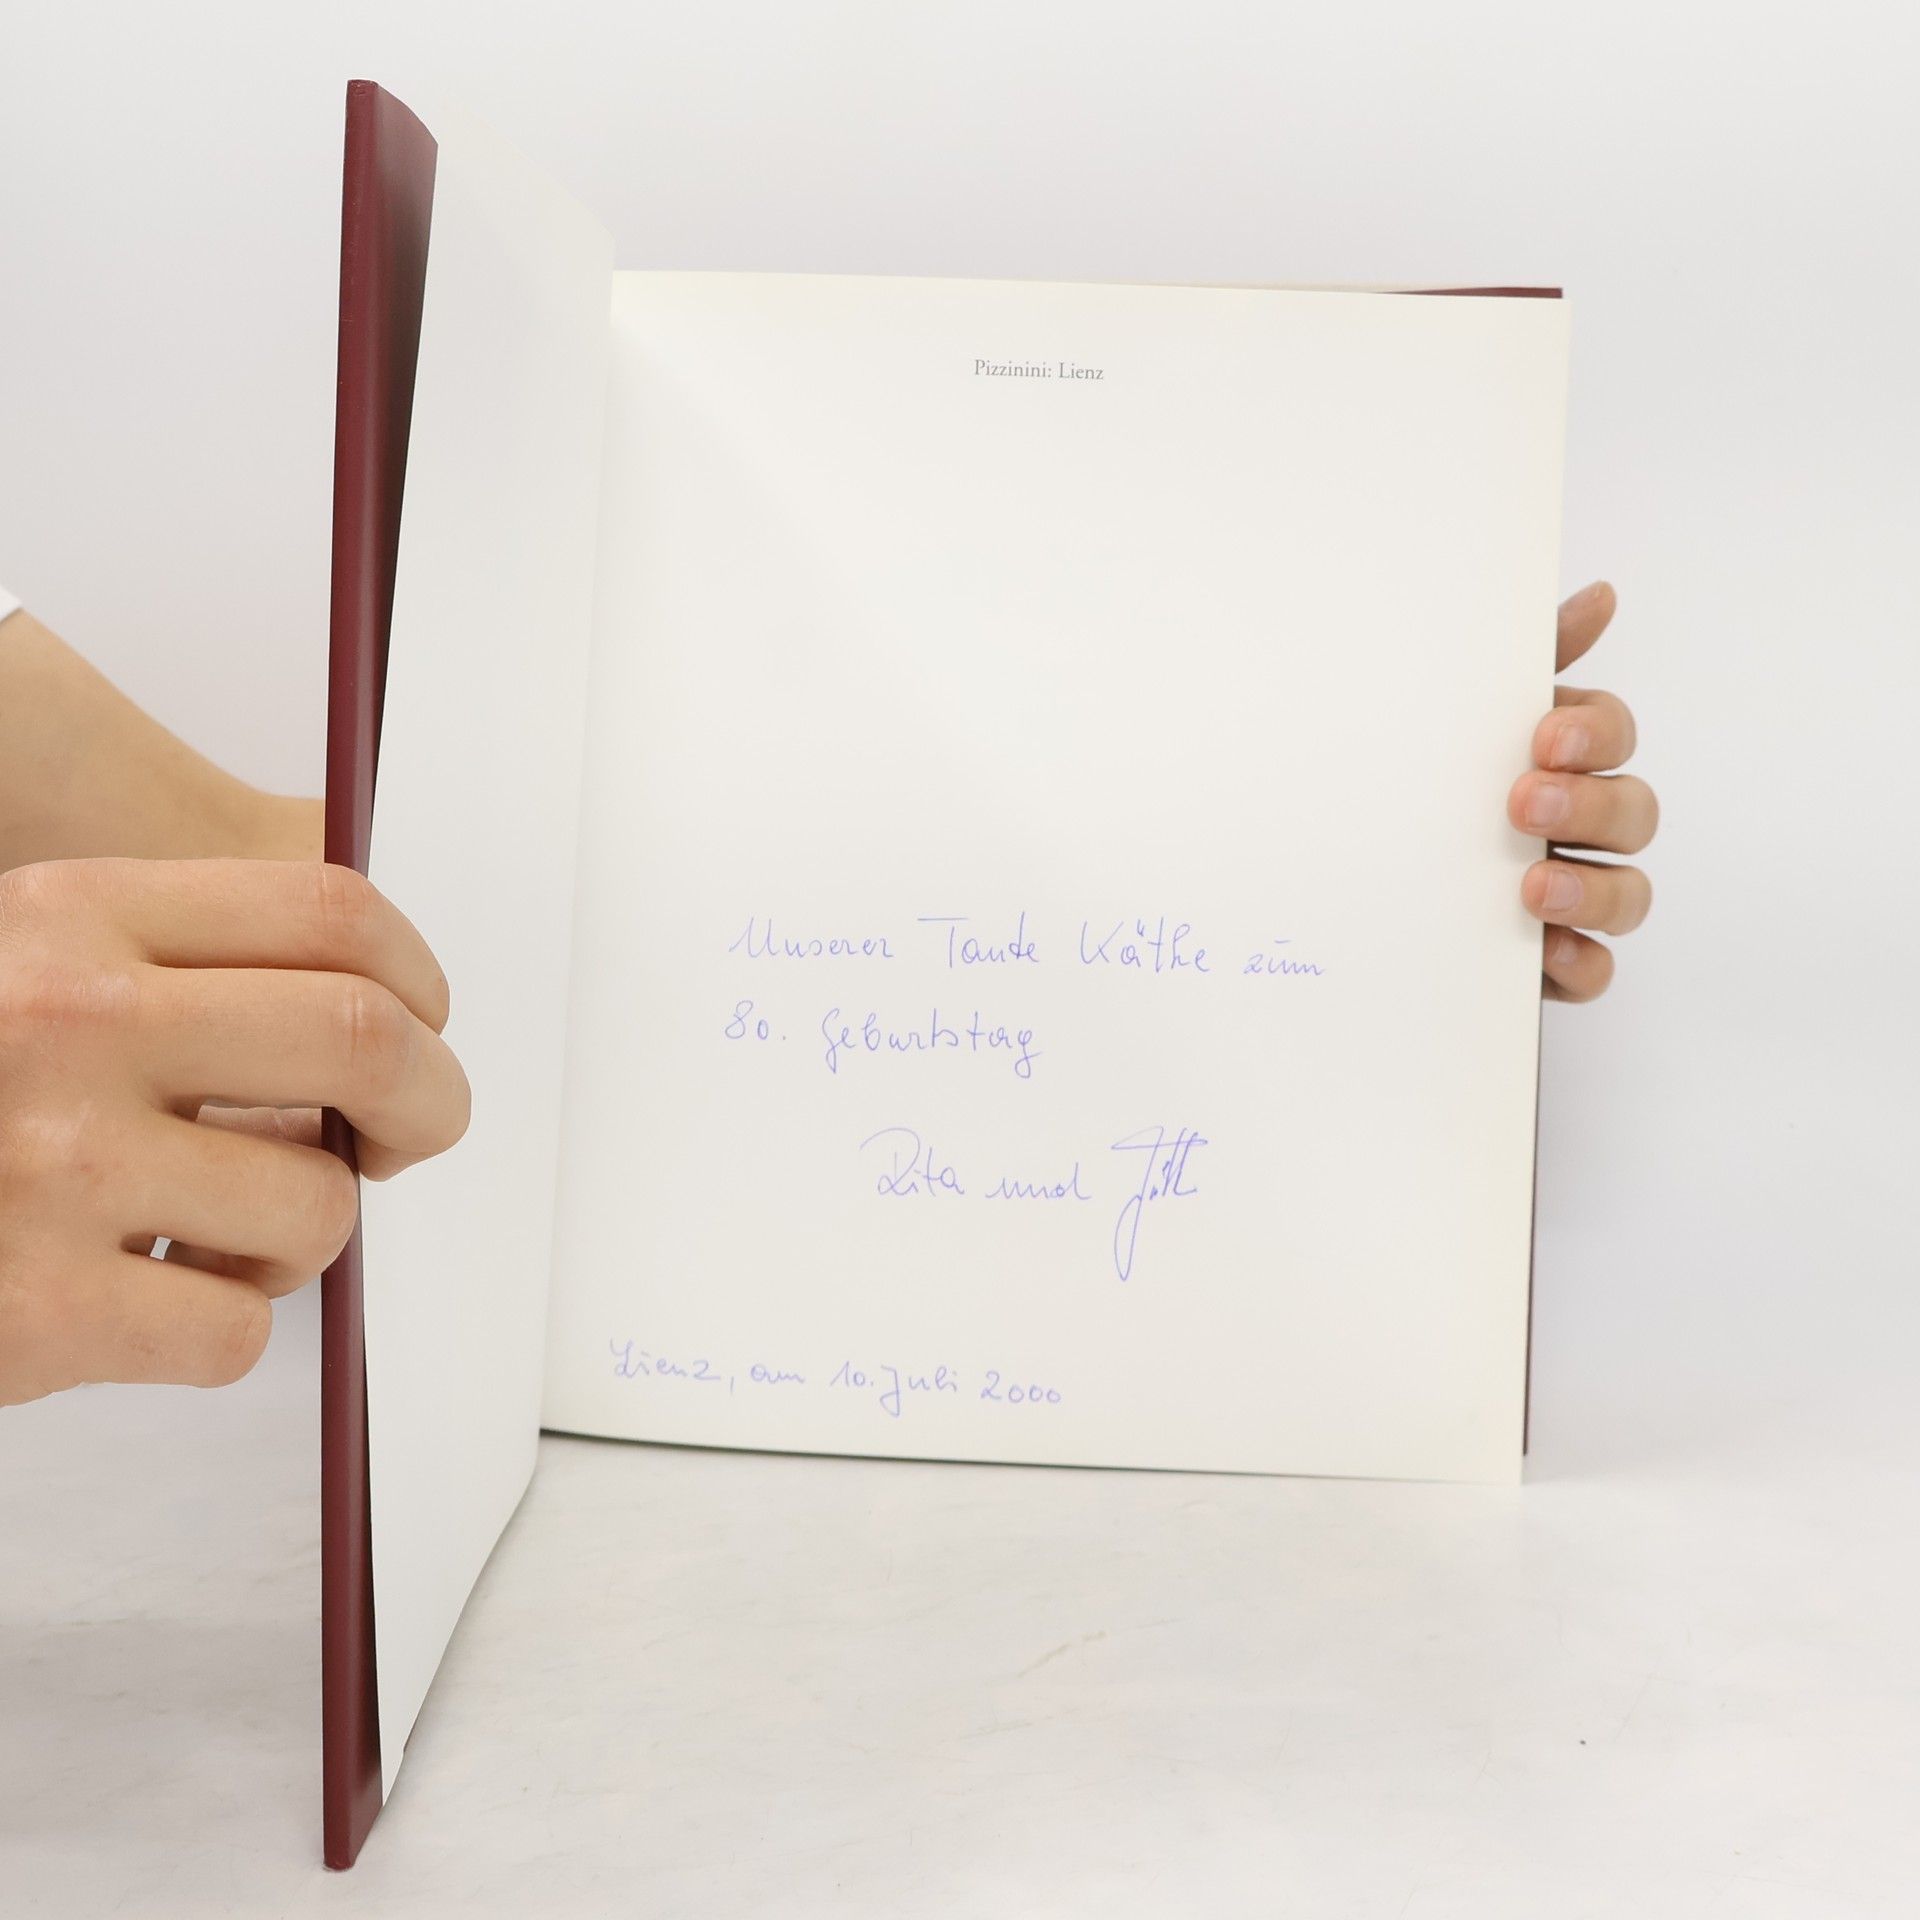 Pizzinini: Lienz
Unserer Tante Käthe zum
80. Geburtstag
Rita und
Lienz, am 10. Juli 2000